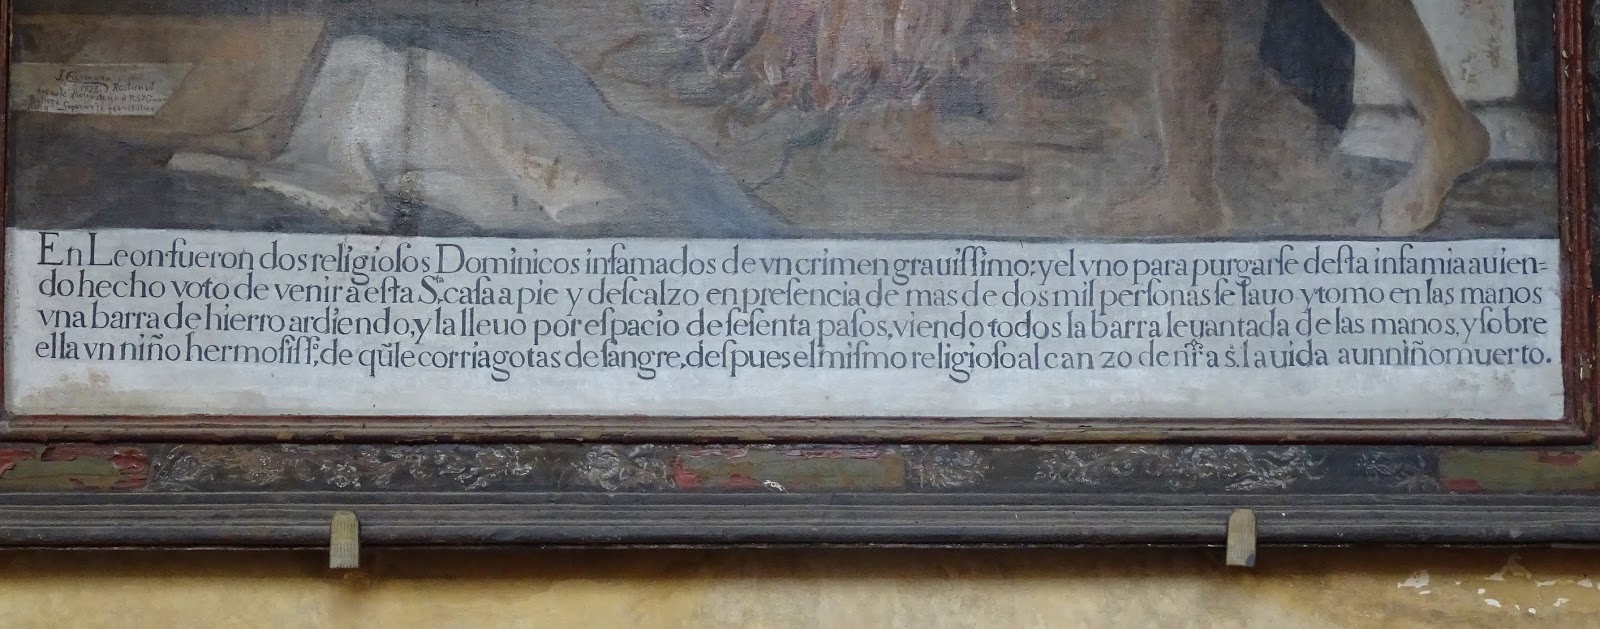 1928 Restauró
En Leon fueron dos religiosos Dominicos infamados de vn crimen grauissimo; y el vno para purgarse desta infamia auien=
do hecho voto de venir à esta S.ta casa a pie y descalzo en presencia de mas de dos mil personas se lauo y tomo en las manos
vna barra de hierro ardiendo, y la lleuo por espacio de sesenta pasos, viendo todos la barra leuantada de las manos, y sobre
ella vn niño hermosiss.o, de qũ le corria gotas de sangre, despues el mismo religioso alcanzo de nr̃a s.ra la uida a un niño muerto.